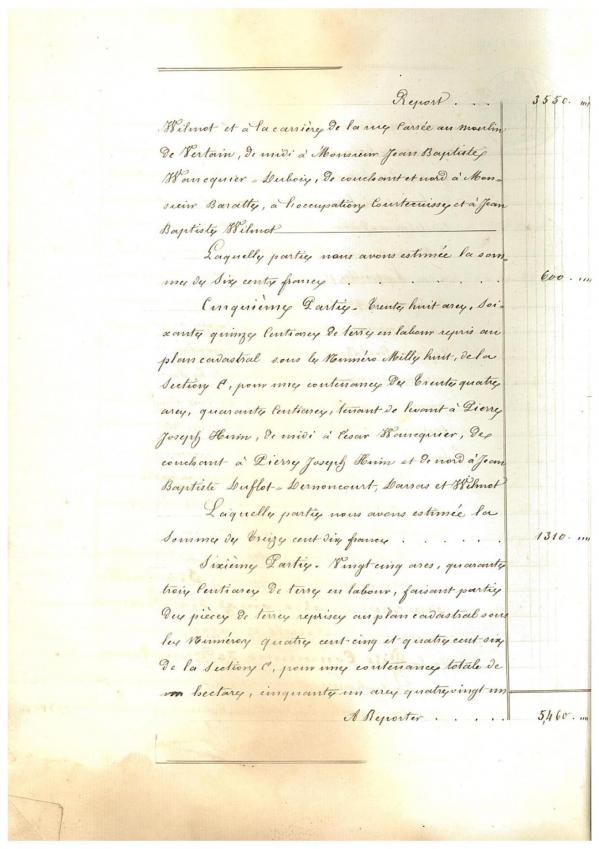 Report . . . 3550 . "
Wilmot et à la carrière de la rue Carrée au moulin
de Vertain, de midi à Monsieur Jean Baptiste
Wancquier-Dubois, de couchant et nord à Mon-
sieur Baratte, à l'occupation Courtecuisse et à Jean
Baptiste Wilmot
Laquelle partie nous avons estimée la som-
me de Six cents francs . . . . . . 600 . "
Cinquième Partie. Trente huit ares, Soi-
xante quinze Centiares de terre en labour repris au
plan cadastral sous le Numéro Mille huit, de la
Section C, pour une contenance de Trente quatre
ares, quarante Centiares, tenant de levant à Pierre
Joseph Huin, de midi à César Wancquier, de
couchant à Pierre Joseph Huin et de nord à Jean
Baptiste Duflot-Dernoncourt, Darras et Wilmot
Laquelle partie nous avons estimée la
Somme de Treize cent dix francs . . . . . . 1310 . "
Sixième Partie. Vingt cinq ares, quarante
trois Centiares de terre en labour, faisant partie
des pièces de terre reprises au plan cadastral sous
les Numéros quatre cent cinq et quatre cent six
de la Section C, pour une contenance totale de
un hectare, cinquante un ares quatre vingt un
A Reporter . . . . . 5,460 . "